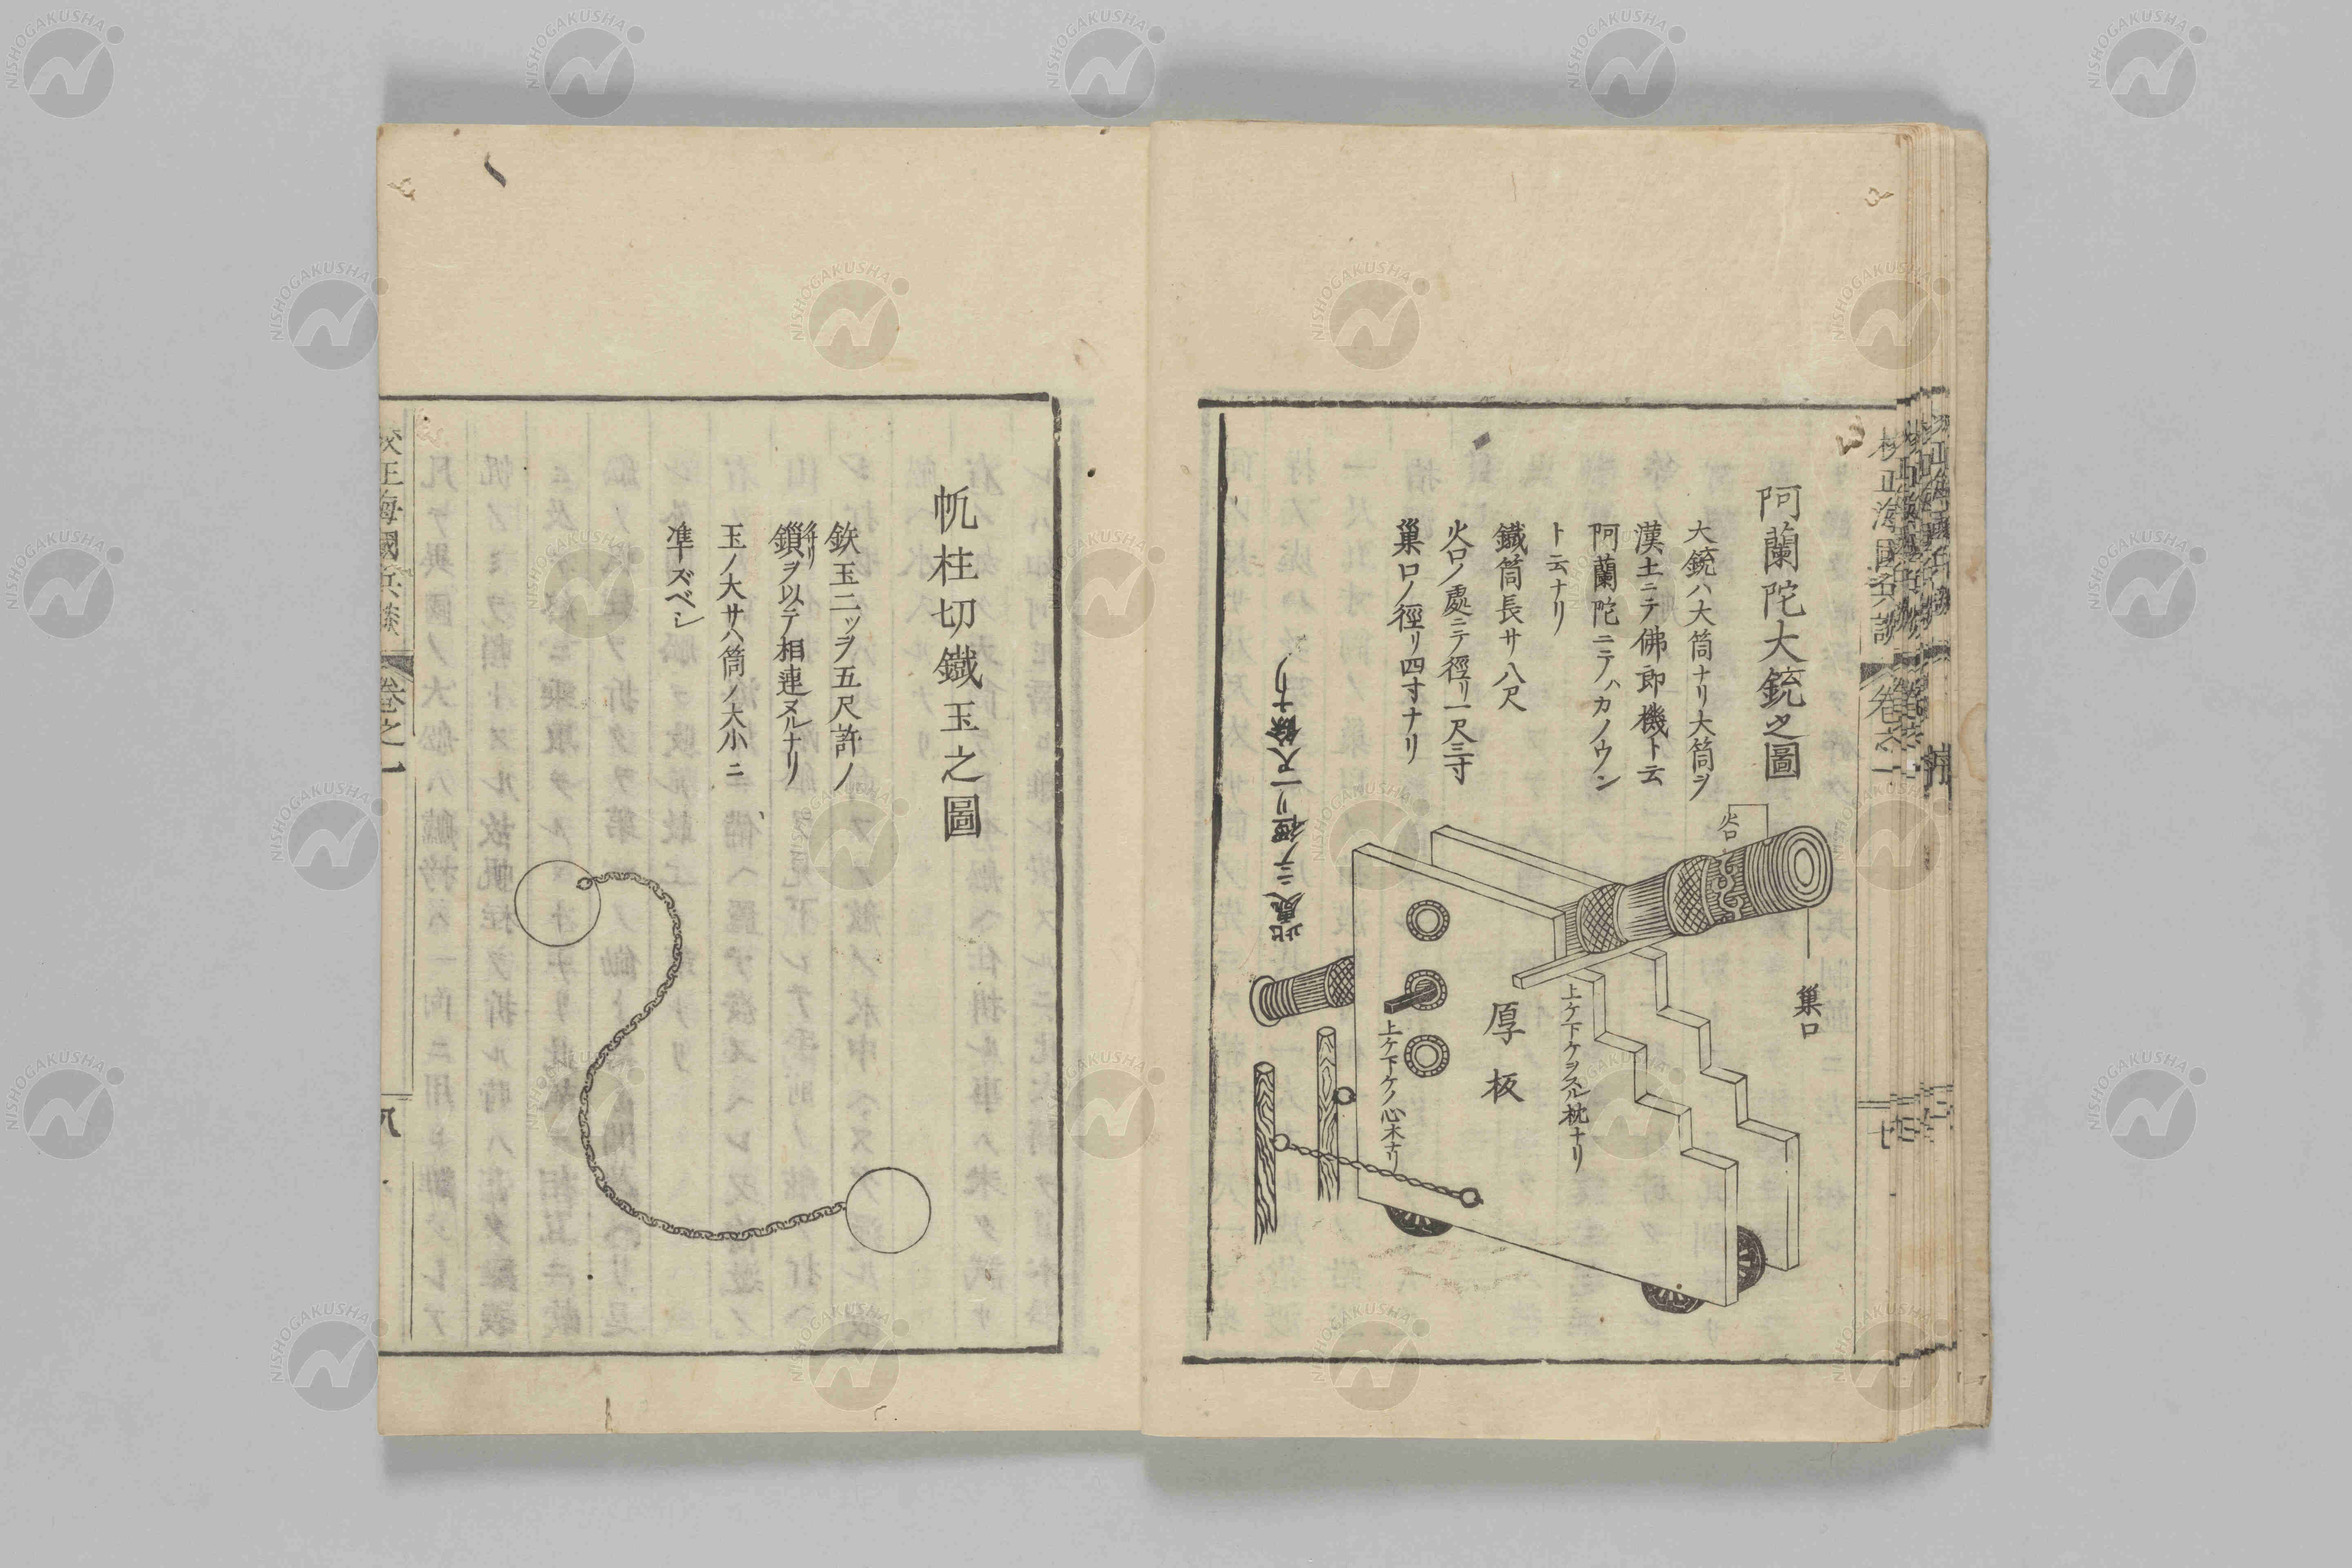 阿蘭陀大銃之圖
大銃ハ大筒ナリ大筒ヲ
漢土ニテ佛郎機ト云
阿蘭陀ニテハカノウン
ト云ナリ
鐵筒長サ八尺
火口ノ處ニテ徑リ一尺三寸
巢口ノ徑リ四寸ナリ
此處ニテ徑リ一尺餘ナリ
火口
巢口
厚板
上ケ下ケヲスル枕ナリ
上ケ下ケノ心木ナリ
校正海國兵談
卷之一
七
帆柱切鐵玉之圖
鉄玉二ッヲ五尺許ノ
鎖ヲ以テ相連ヌルナリ
玉ノ大サハ筒ノ大小ニ
凖ズベシ
校正海國兵談
卷之一
八
NISHOGAKUSHA